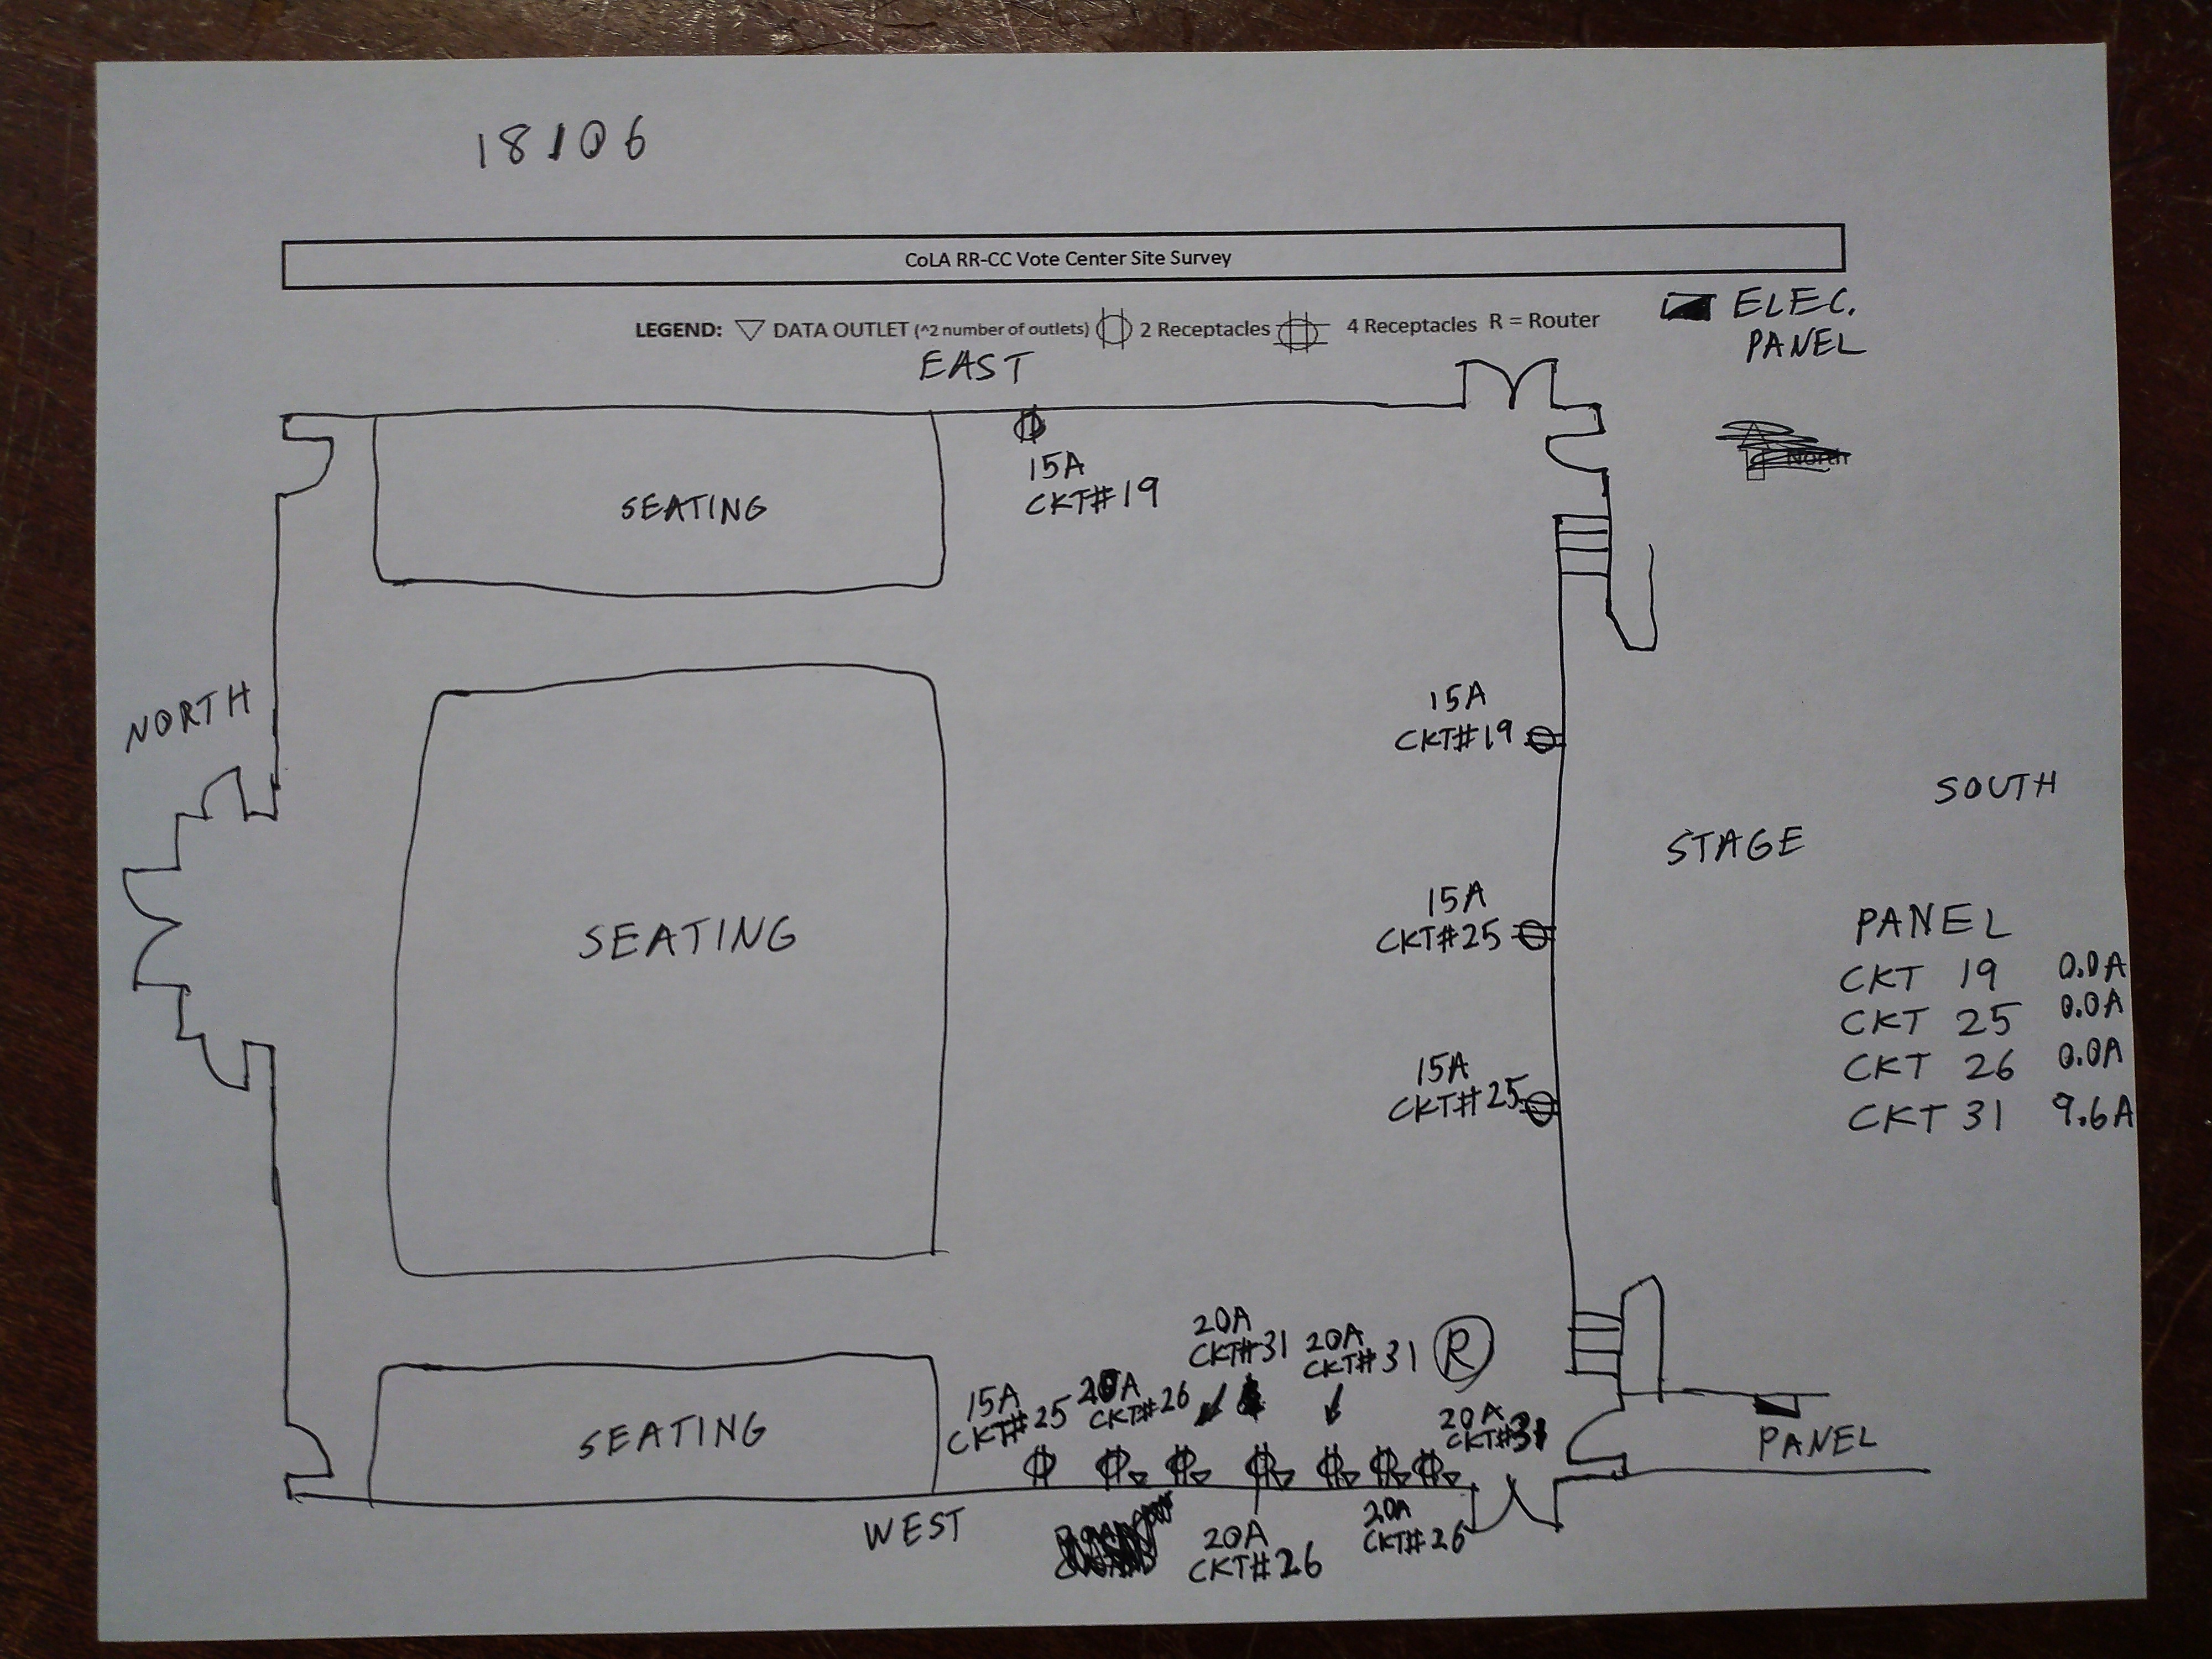 18106
CoLA RR-CC Vote Center Site Survey
LEGEND: DATA OUTLET (^2 number of outlets) 2 Receptacles 4 Receptacles R = Router
ELEC.
PANEL
EAST
North
15A
CKT# 19
SEATING
NORTH
15A
CKT# 19
SOUTH
STAGE
SEATING
15A
CKT# 25
PANEL
CKT 19 0.0A
CKT 25 0.0A
CKT 26 0.0A
CKT 31 9.6A
15A
CKT# 25
20A
CKT# 31
20A
CKT# 31
R
15A
CKT# 25
20A
CKT# 26
20A
CKT# 31
SEATING
PANEL
WEST
20A
CKT# 26
20A
CKT# 26